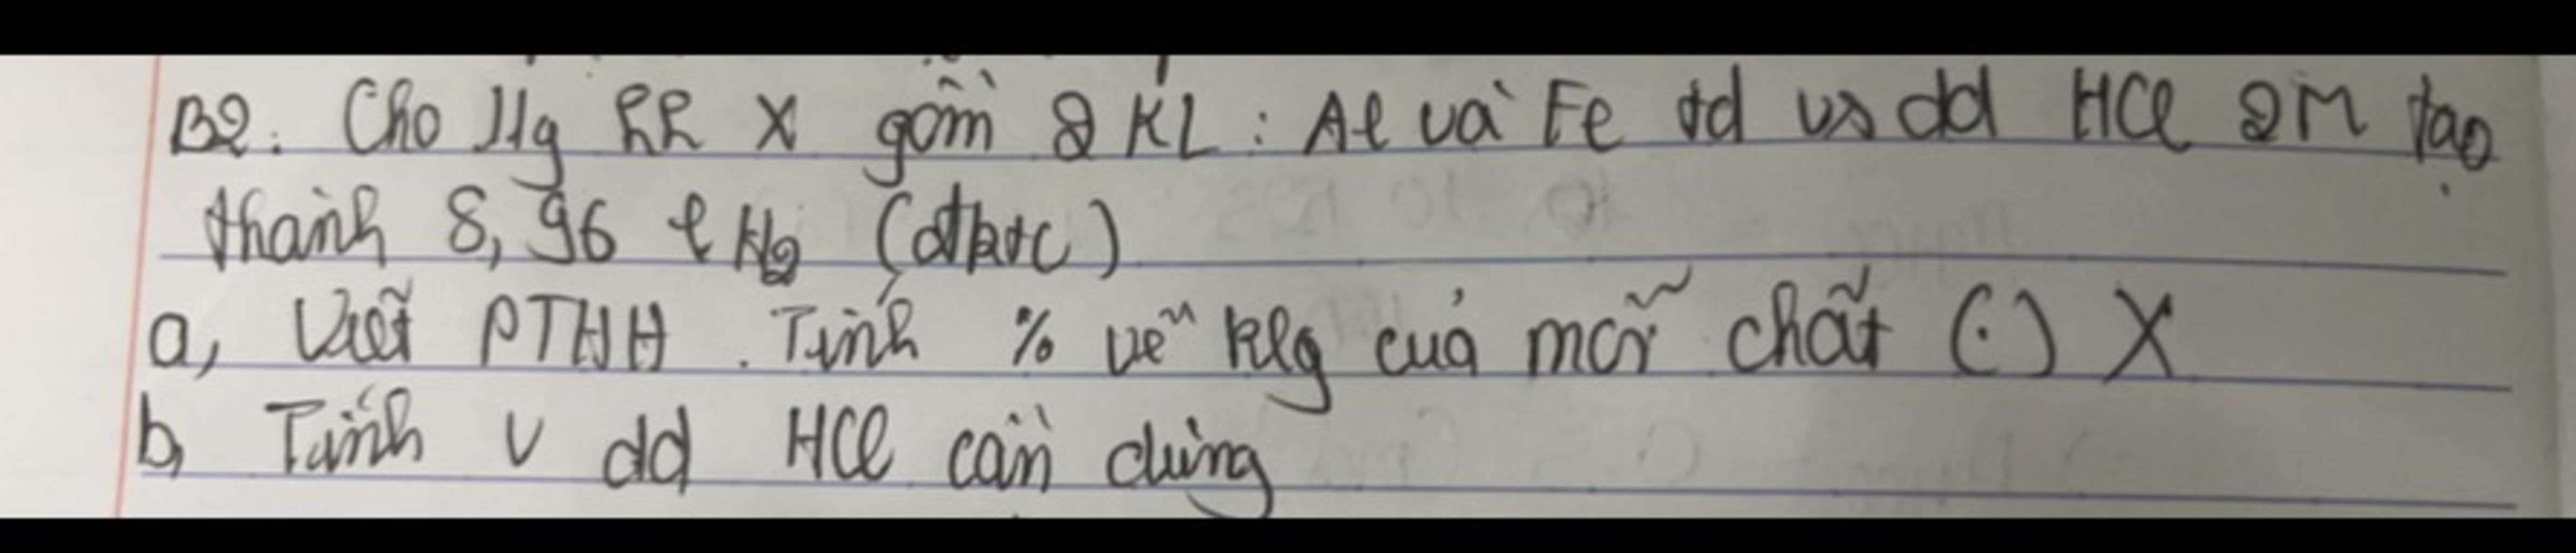 B2. Cho 11g hh X gồm 2 KL: Al và Fe td vs dd HCl 2M tạo
thành 8,96 l H2 (đktc)
a, Viết PTHH. Tính % về klg của mỗi chất (.) X
b, Tính V dd HCl cần dùng